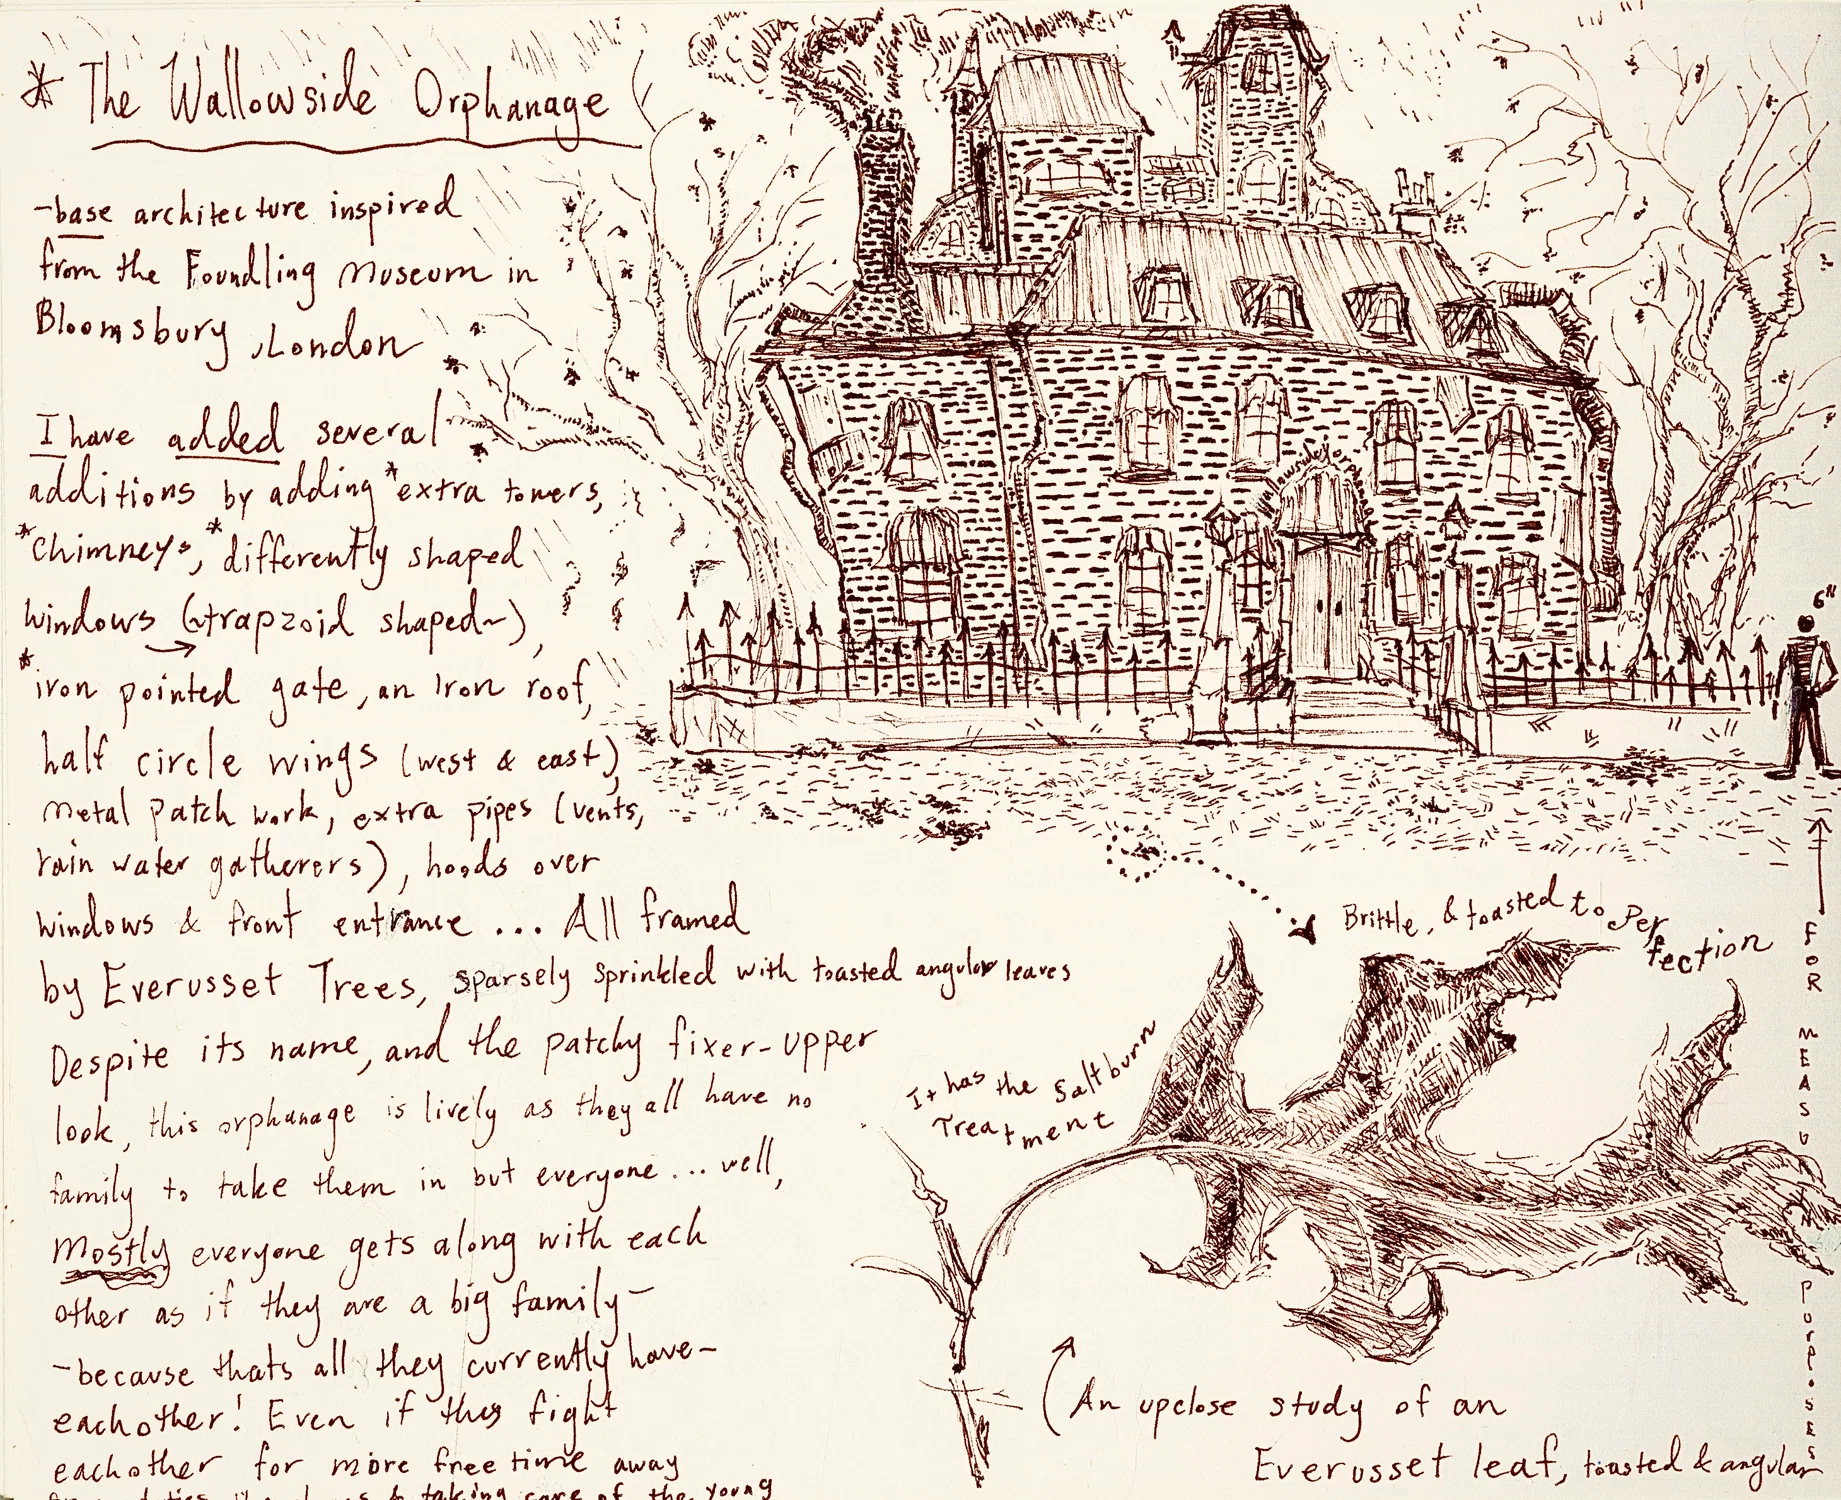 * The Wallowside Orphanage
-base architecture inspired
from the Foundling Museum in
Bloomsbury, London
I have added several
additions by adding *extra towers,
*chimneys, *differently shaped
windows (~trapzoid shaped~),
*iron pointed gate, an Iron roof,
half circle wings (west & east),
metal patch work, extra pipes (vents,
rain water gatherers), hoods over
windows & front entrance ... All framed
by Everusset Trees, sparsely sprinkled with toasted angular leaves
Despite its name, and the patchy fixer-upper
look, this orphanage is lively as they all have no
family to take them in but everyone ... well,
mostly everyone gets along with each
other as if they are a big family-
-because thats all they currently have-
eachother! Even if they fight
eachother for more free time away
& taking care of the young
Wallowside orphanage
6"
FOR MEASUREMENT PURPOSES
Brittle, & toasted to Per
fection
It has the Salt burn
Treatment
An upclose study of an
Everusset leaf, toasted & angular